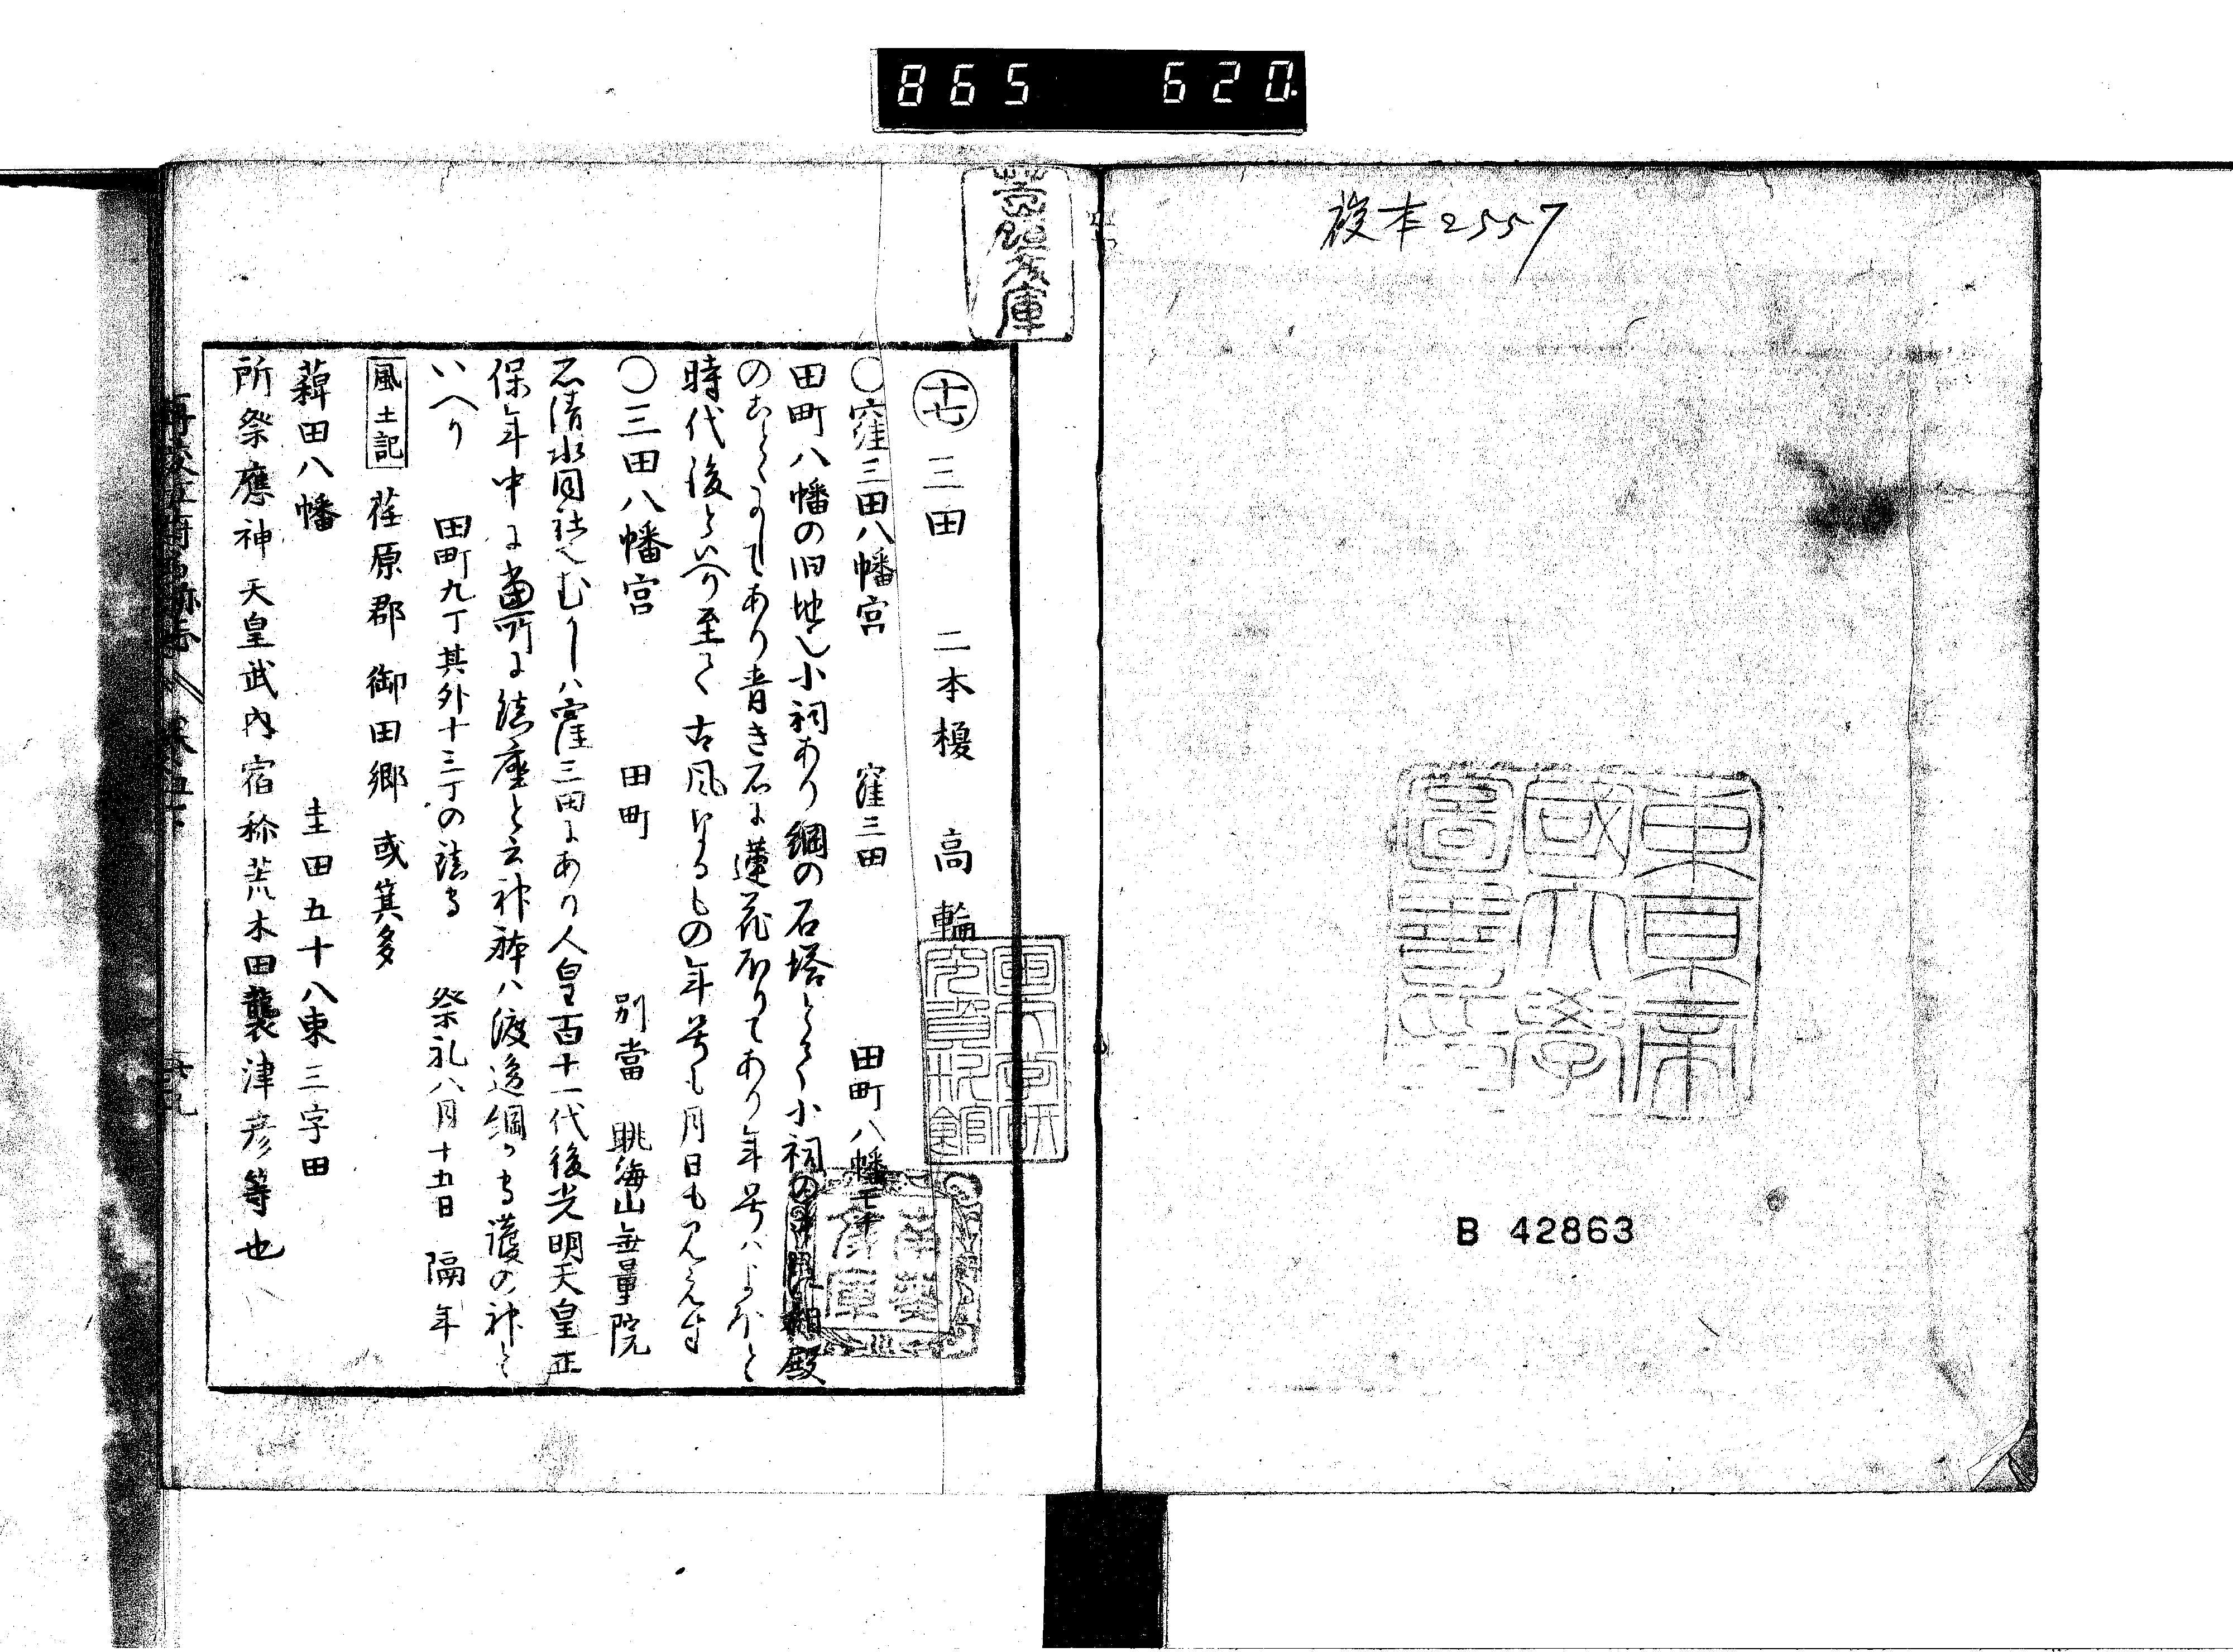 865 620
複本2557
東京帝國大學圖書印
B 42863
十七 三田 二本榎 高輪
○窪三田八幡宮 窪三田 田町八幡
田町八幡の旧地也小祠あり綱の石塔とて小祠の 相殿
のことくにしてあり青き石に蓮花ほりてあり年号ハよほと
時代後といへり至て古風なるもの年号も月日も見えす
○三田八幡宮 田町 別當 眺海山無量院
石清水同社也むかしハ窪三田にあり人皇百十一代後光明天皇正
保年中に當所に鎮座と云神躰ハ渡邉綱か守護の神と
いへり 田町九丁其外十三丁の鎮守 祭礼八月十五日 隔年
風土記 荏原郡 御田郷 或箕多
薭田八幡 圭田五十八束三字田
所祭應神天皇武内宿祢荒木田襲津彦等也